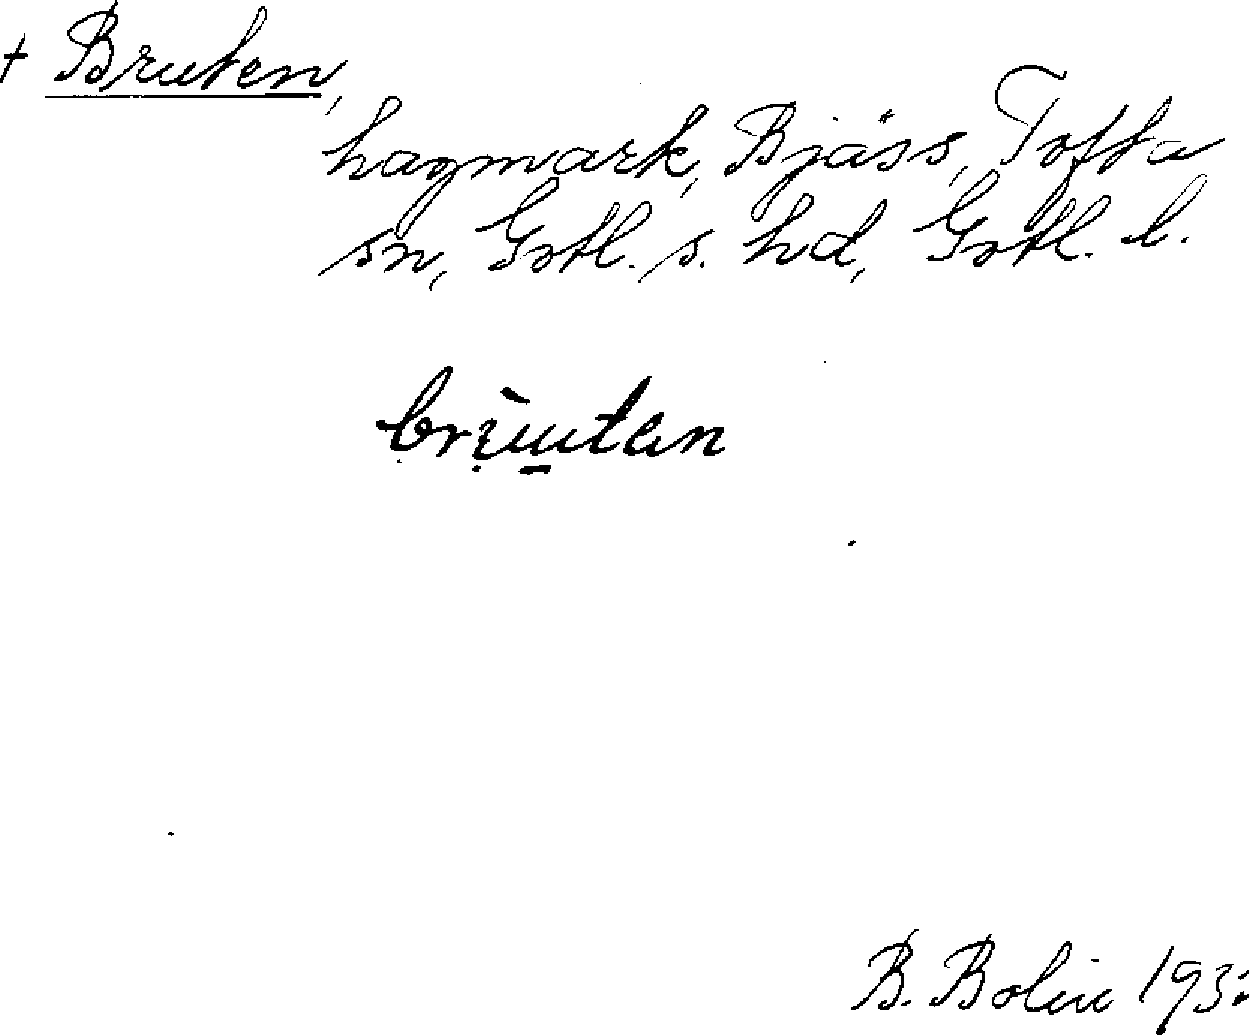 + Bruten,
hagmark, Bjäss, Tofta
sn, Gotl. s. hd, Gotl. l.
B. Bolin 1932